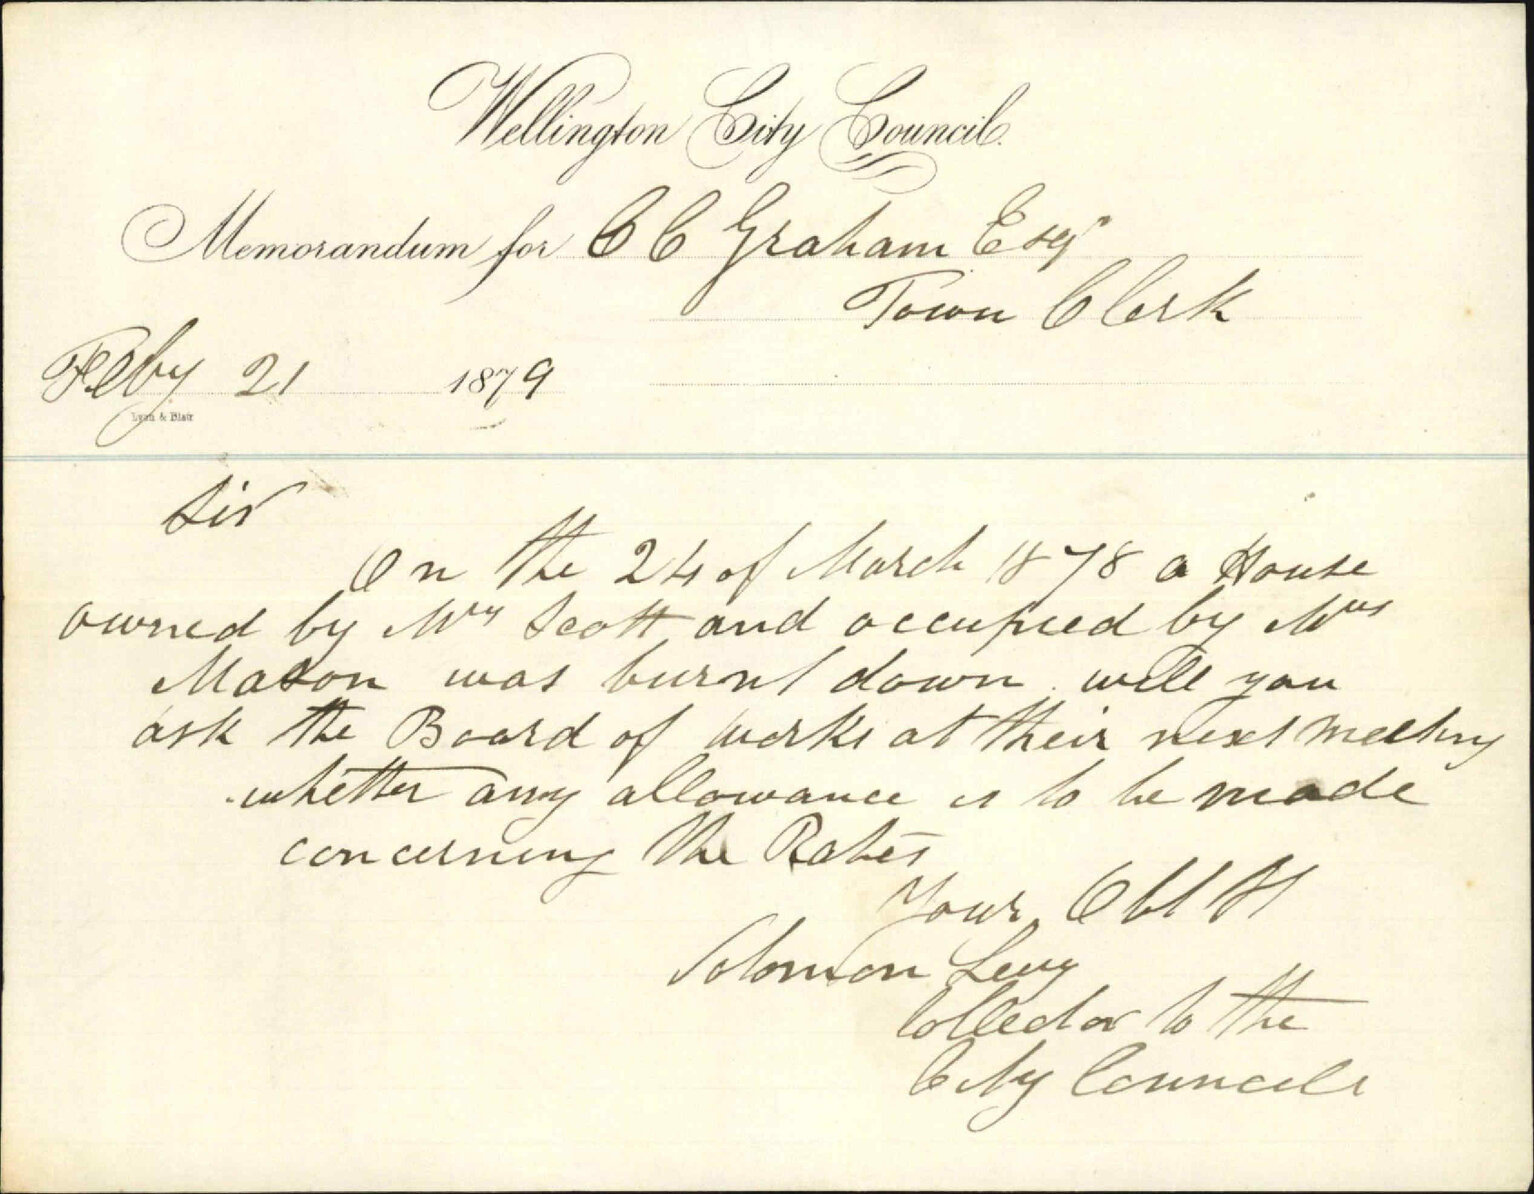 Wellington City Council.
Memorandum for C C Graham Esqr
Town Clerk
Feby 21 1879
Lyon & Blair
Sir
On the 24 of March 1878 a House
owned by Mrs Scott and occupied by Mrs
Mason was burnt down will you
ask the Board of works at their next meeting
whether any allowance is to be made
concerning the Rates
Your Obt St
Solomon Levy
Collector to the
City Council